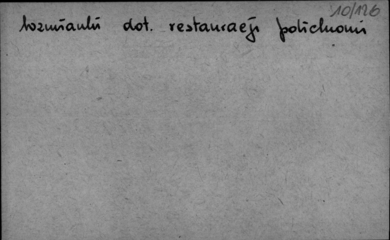 10/126
wzmianki dot. restauracji polichromii